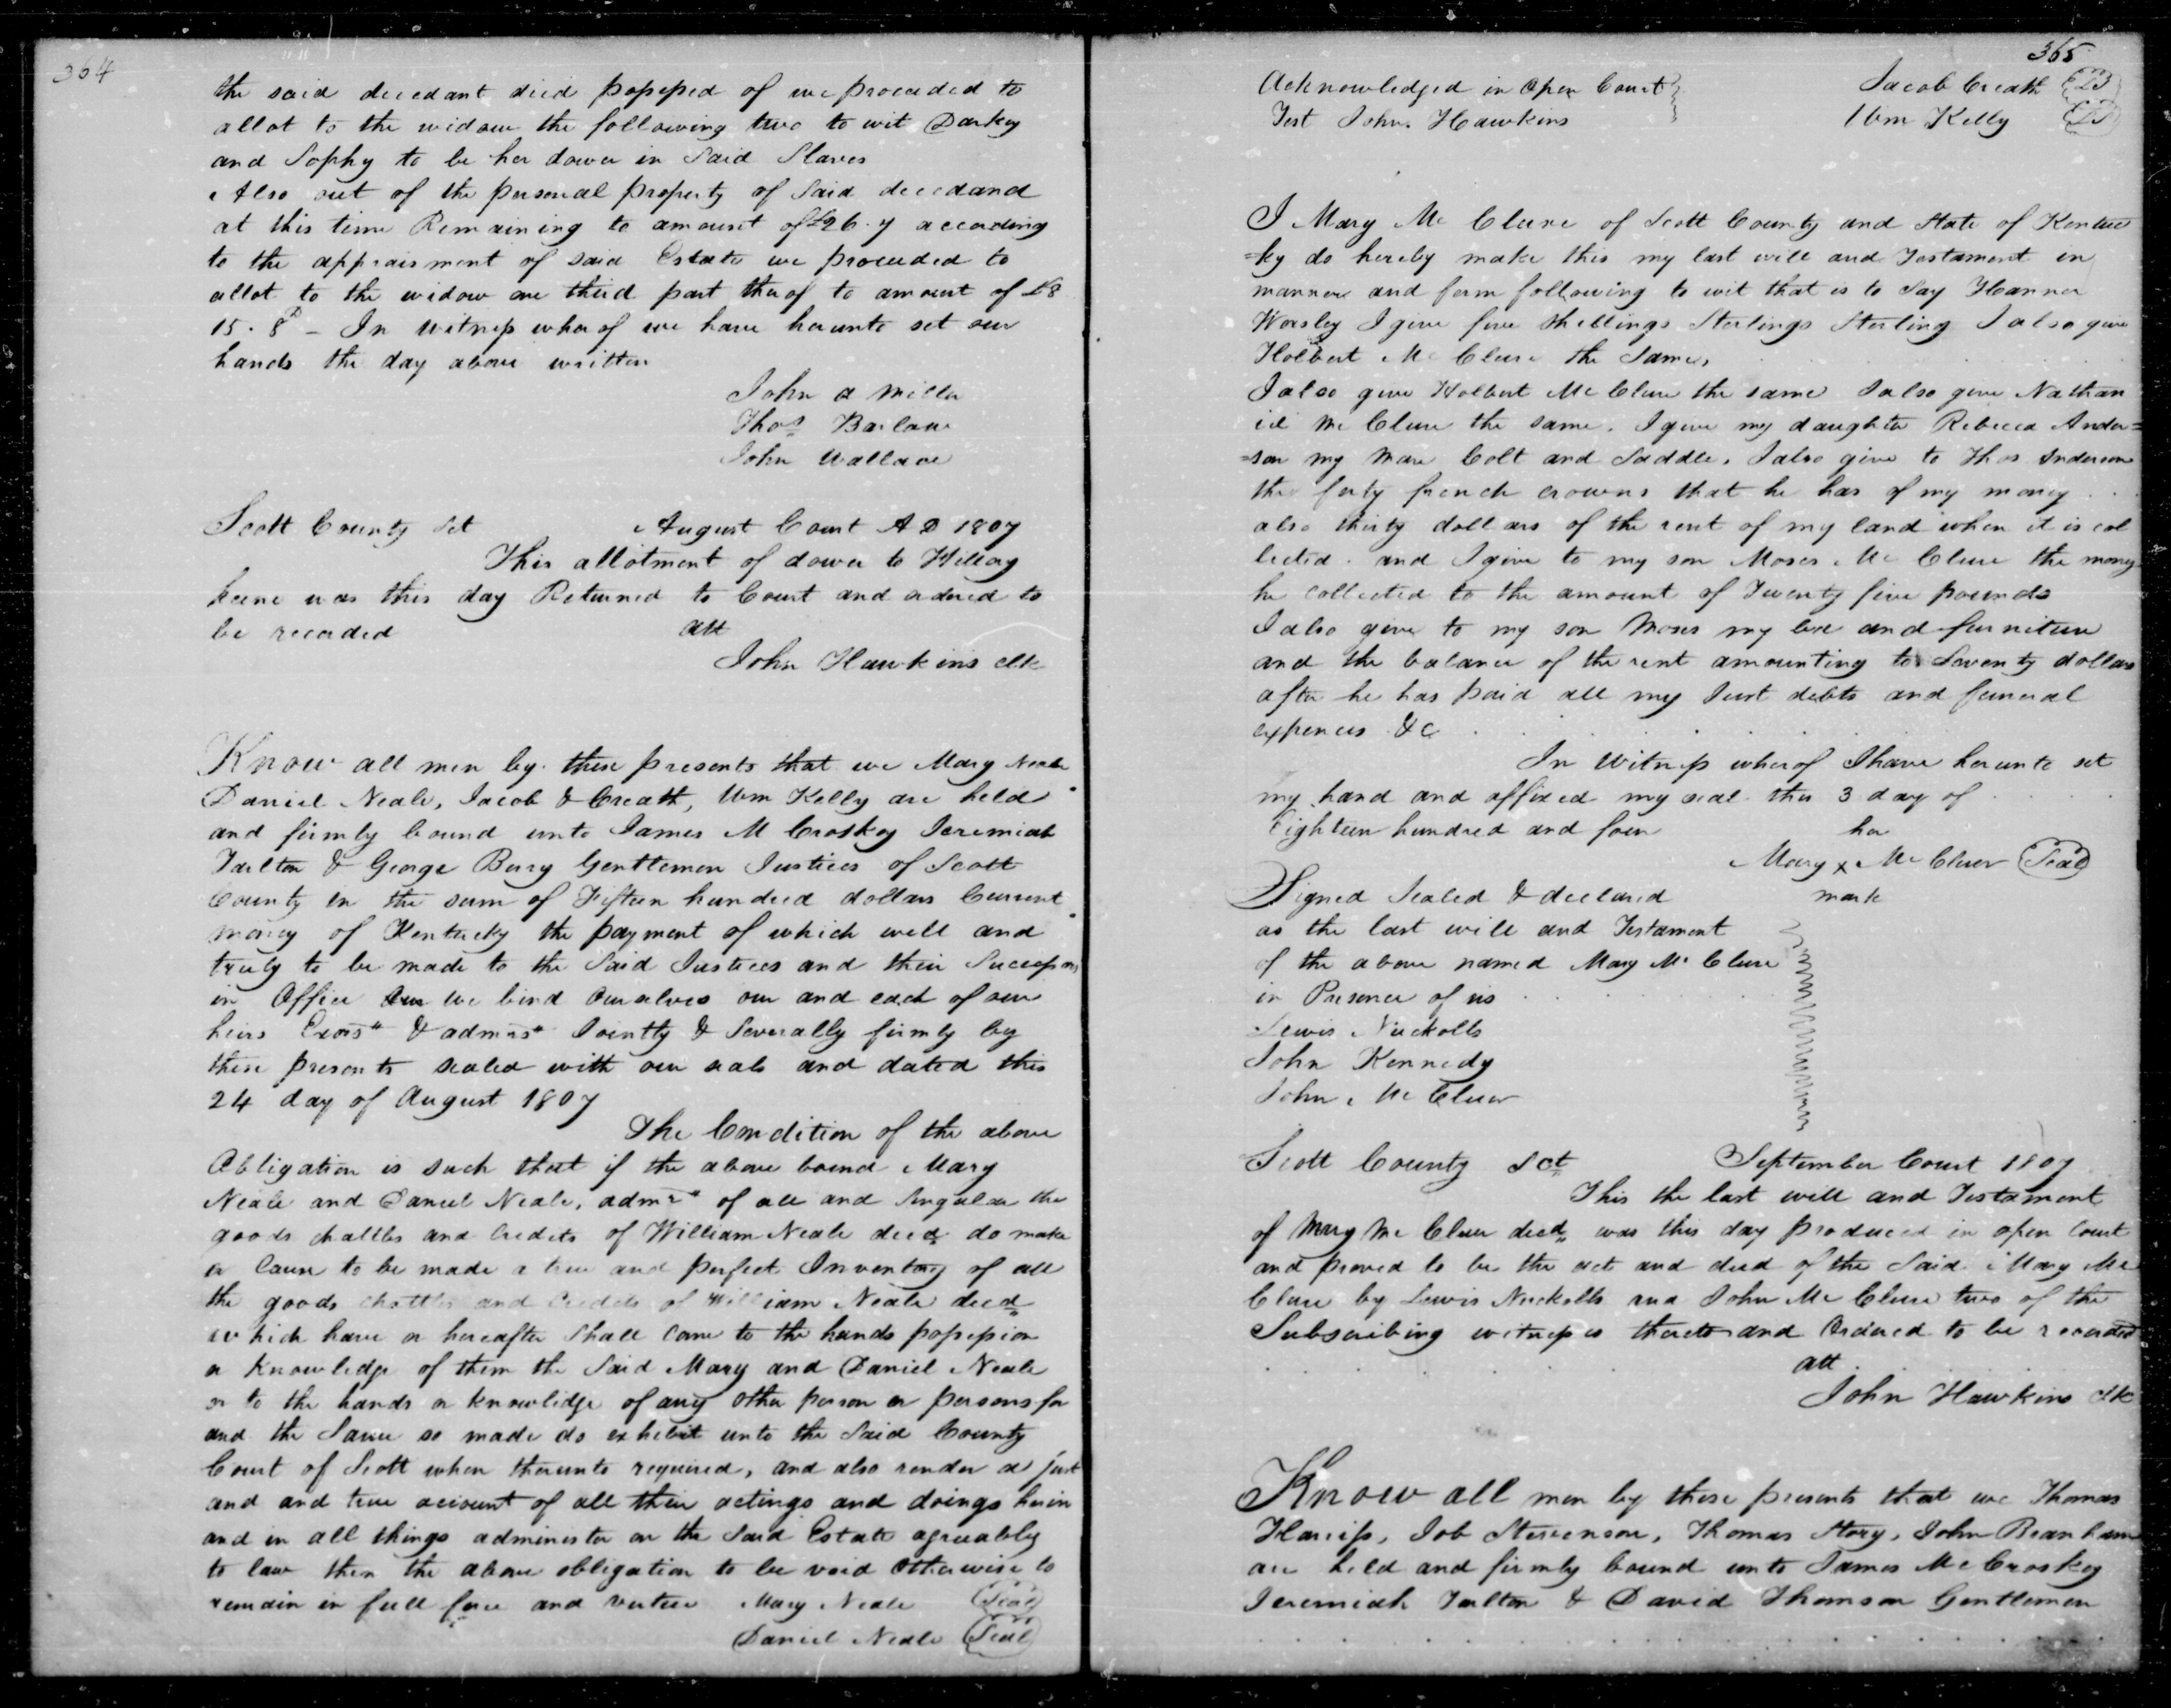 364
the said decedant died possessed of we proceeded to
allot to the widow the following two to wit Darkey
and Sophy to be her dower in said Slaves
Also out of the personal property of Said decedand
at this time Remaining to amount of £26.7 according
to the appraisment of said Estate we proceeded to
allot to the widow one third part therof to amount of £8
15.8 - In witness wherof we have hereunto set our
hands the day above written
John a Miller
Thos Barlow
John Wallace
Scott County Sct August Court A D 1807
This allotment of dower to Hillory
Keene was this day Returned to Court and ordered to
be recorded att
John Hawkins clk
Know all men by these presents that we Mary Neale
Daniel Neale, Jacob & Creath, Wm Kelly are held
and firmly bound unto James M Croskey Jeremiah
Tarlton & George Berry Gentlemen Justices of Scott
County in the sum of Fifteen hundred dollars Current
money of Kentucky the payment of which well and
truly to be made to the Said Justices and their Successors
in Office we bind Ourselves our and each of our
heirs Exors & admrs Jointly & Severally firmly by
these presents sealed with our seals and dated this
24 day of August 1807
The Condition of the above
Obligation is such that if the above bound Mary
Neale and Daniel Neale, admrs of all and Singular the
goods chattles and Credits of William Neale decd do make
or Cause to be made a true and perfect Inventory of all
the goods chattles and Credits of William Neale decd
which have or hereafter Shall Come to the hands possession
or knowledge of them the Said Mary and Daniel Neale
or to the hands or knowledge of any other person or persons for
and the Same so made do exhebit unto the Said County
Court of Scott when thereunto required, and also render a just
and and true account of all their actings and doings herin
and in all things administer on the Said Estate agreeably
to law then the above obligation to be void otherwise to
remain in full force and vertue Mary Neale Seal
Daniel Neale Seal
365
Acknowledged in Open Court Jacob Creath LS
Test John Hawkins Wm Kelly LS
I Mary Mc Clure of Scott County and State of Kentuc
=ky do hereby make this my last will and Testament in
manner and form following to wit that is to Say Hanner
Worsley I give five Shellings Sterlings Sterling I also give
Holbert Mc Clure the Same,
I also give Holbert Mc Clure the same I also give Nathan
iel Mc Clure the same. I give my daughter Rebecca Ander=
=son my Mare Colt and Saddle. I also give to Thos Anderson
the forty french crowns that he has of my money
also thirty dollars of the rent of my land when it is col
lected. and I give to my son Moses Mc Clure the money
he collected to the amount of Twenty five pounds
I also give to my son Moses my bed and furniture
and the balance of the rent amounting to Seventy dollars
after he has paid all my Just debts and funeral
expences &c
In Witness wherof I have hereunto set
my hand and affixed my seal this 3 day of
Eighteen hundred and four her
Mary x Mc Cluer Seal
Signed Sealed & declared mark
as the last will and Testament
of the above named Mary Mc Clure
in Presence of us
Lewis Nuckolls
John Kennedy
John Mc Cluer
Scott County Sct September Court 1807
This the last will and Testament
of Mary Mc Cluer decd was this day produced in open Court
and proved to be the act and deed of the Said Mary Mc
Clure by Lewis Nuckolls and John Mc Clure two of the
Subscribing witnesses thereto and Ordered to be recorded
att
John Hawkins Clk
Know all men by these presents that we Thomas
Job Stevenson, Thomas Story, John Branham
are held and firmly bound unto James Mc Croskey
Jeremiah Tarlton & David Thomson Gentlemen